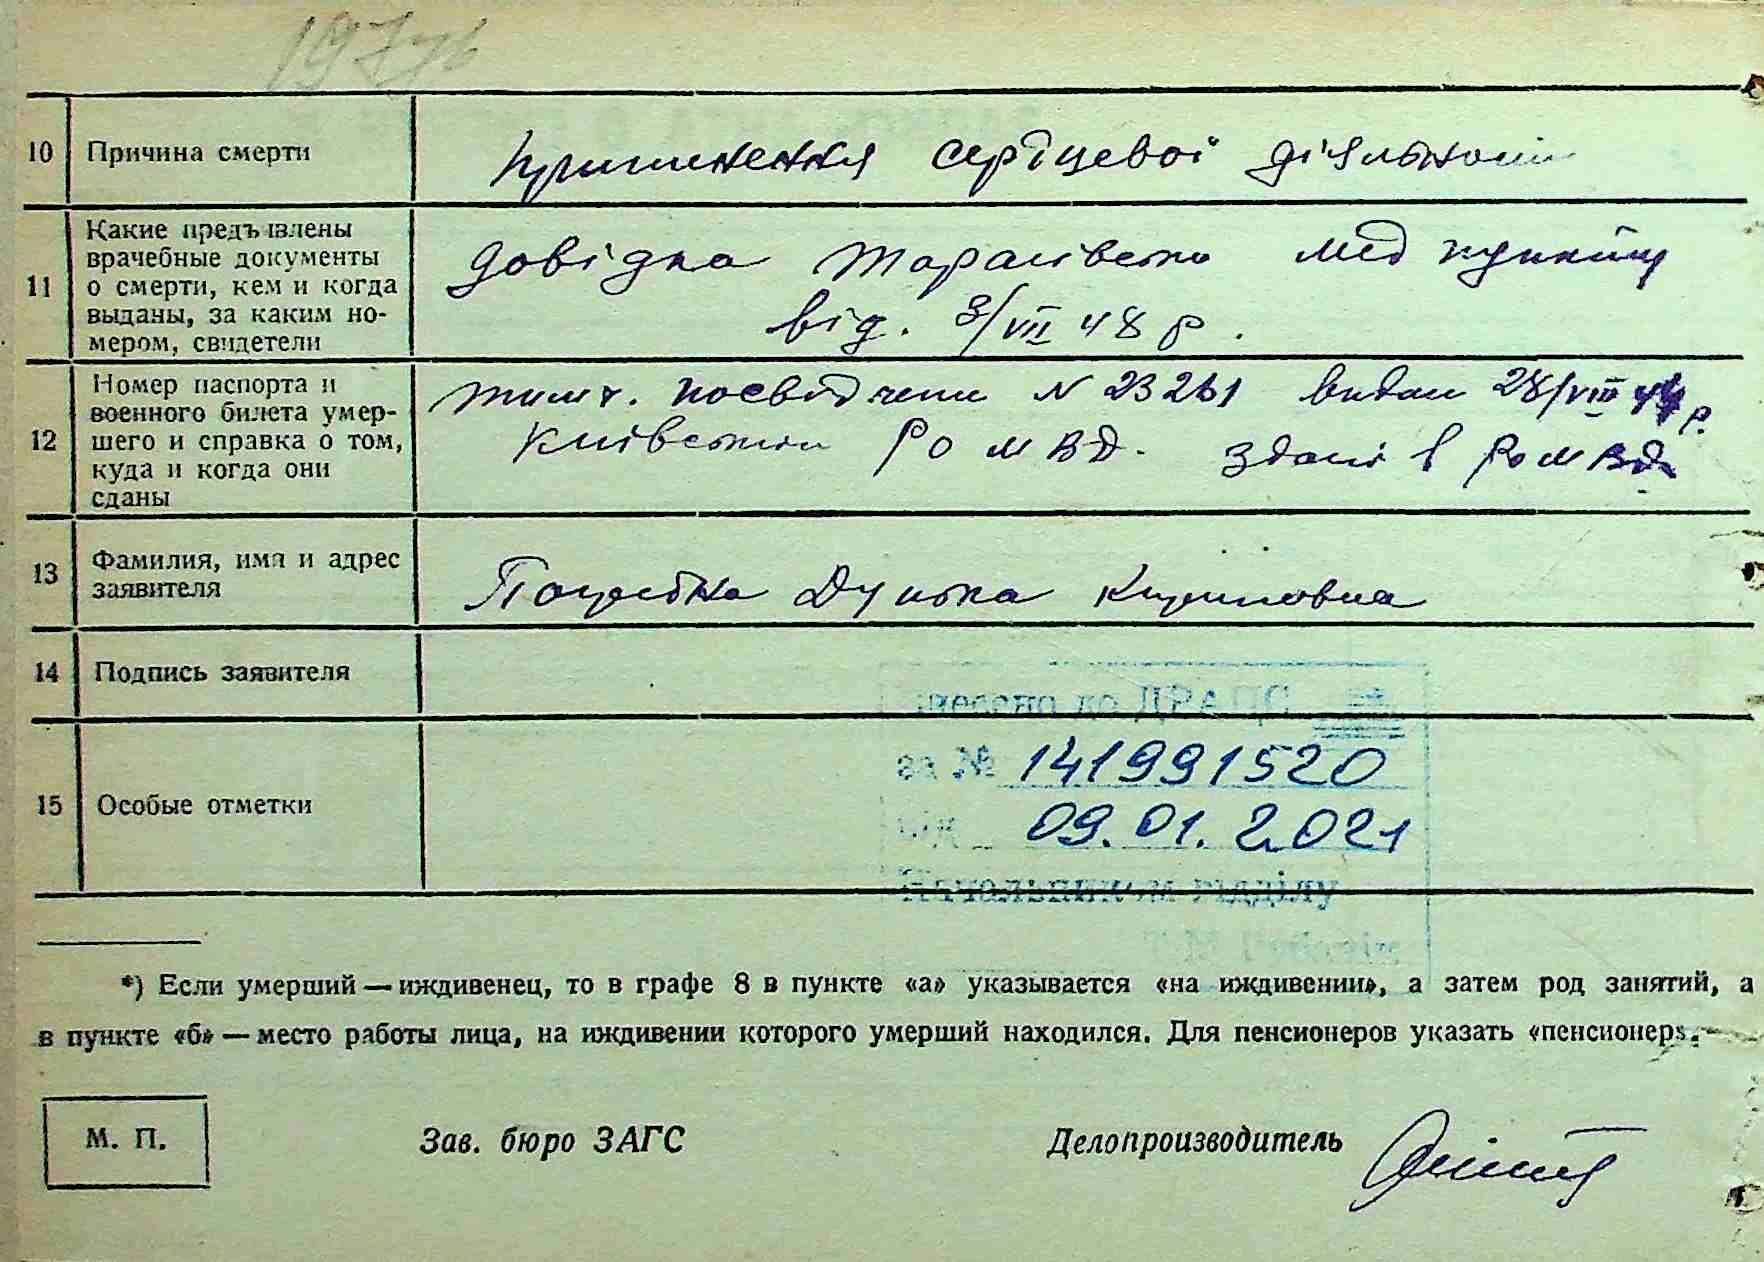 10 Причина смерти
припинення серцевої діяльності
11 Какие предъявлены
врачебные документы
о смерти, кем и когда
выданы, за каким но-
мером, свидетели
довідка Тарасівського мед пункту
від. 3/VII 48 р.
12 Номер паспорта и
военного билета умер-
шего и справка о том,
куда и когда они
сданы
тимч. посвідчення N 23261 видан 28/VIII 44 р.
Київським РО МВД. здані в РОМВД
13 Фамилия, имя и адрес
заявителя
Дунька Кириловна
14 Подпись заявителя
внесено до ДРАЦС
15 Особые отметки
за № 141991520
від 09.01.2021
Начальником відділу
*) Если умерший — иждивенец, то в графе 8 в пункте «а» указывается «на иждивении», а затем род занятий, а
в пункте «б» — место работы лица, на иждивении которого умерший находился. Для пенсионеров указать «пенсионер».
М. П. Зав. бюро ЗАГС Делопроизводитель